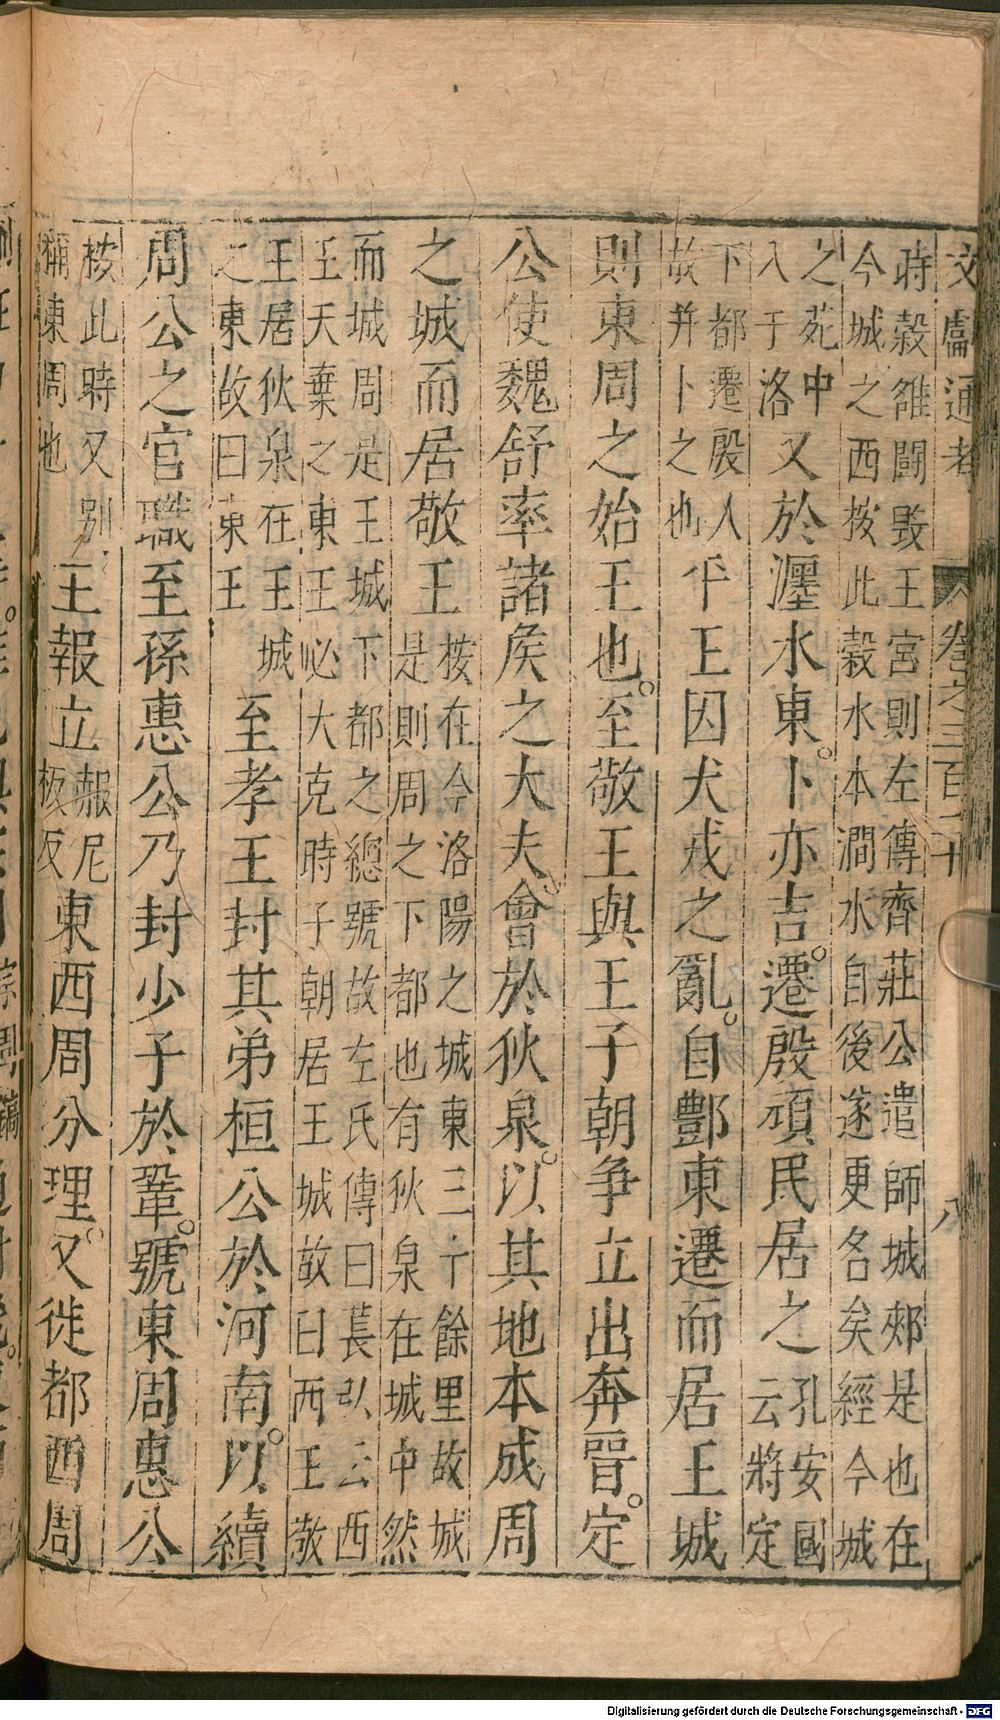 文獻通考 卷之三百二十 八
時穀雒鬬毀王宮則左傳齊莊公遣師城郟是也在
今城之西按此穀水本澗水自後遂更名矣經今城
之苑中
入于洛
又於瀍水東。卜亦吉。遷殷頑民居之
孔安國
云將定
下都遷殷人
故并卜之也
平王因犬戎之亂。自酆東遷而居王城
則東周之始王也。至敬王與王子朝争立出奔晉。定
公使魏舒率諸矦之大夫。會於狄泉。以其地本成周
之城而居敬王
按在今洛陽之城東三十餘里故城
是則周之下都也有狄泉在城中然
而城周是王城下都之總號故左氏傳曰萇弘云西
王天棄之東王必大克時子朝居王城故曰西王敬
王居狄泉在王城
之東故曰東王
至孝王封其弟桓公於河南。以續
周公之官職至孫惠公乃封少子於鞏。號東周惠公
按此時又别
稱東周也
王赧立
赧尼
板反
東西周分理。又徙都西周
Digitalisierung gefördert durch die Deutsche Forschungsgemeinschaft - DFG